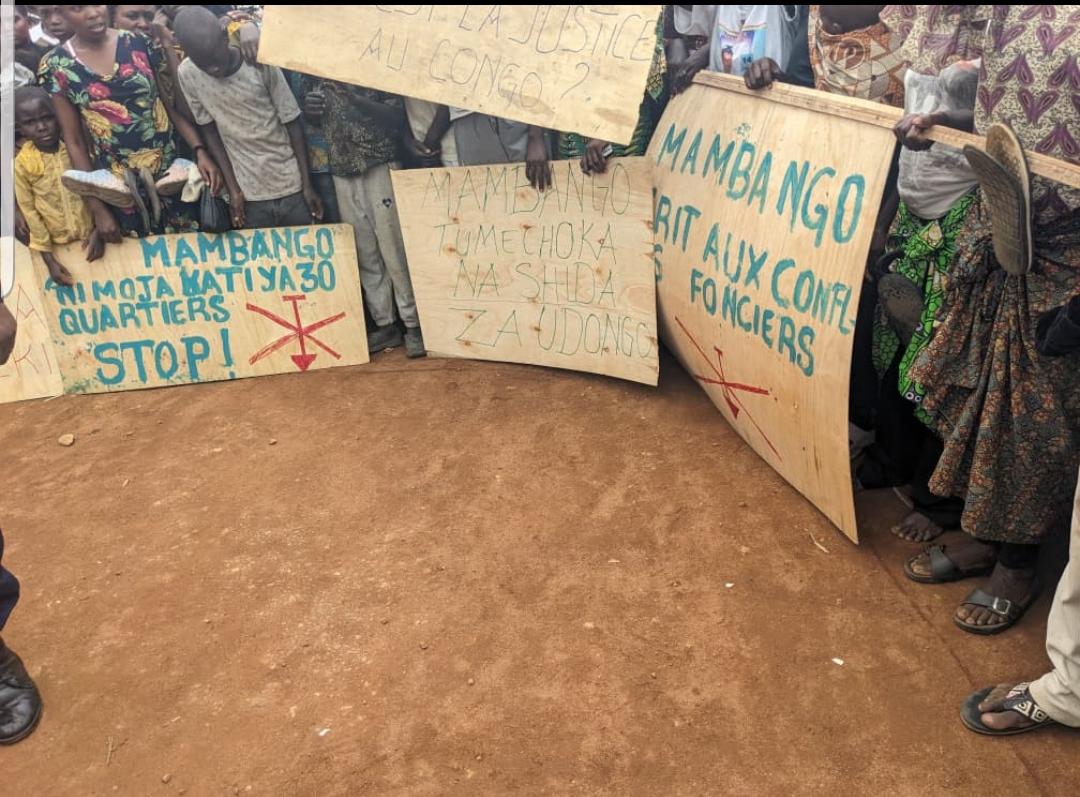 LA JUSTICE
AU CONGO ?
MAMBANGO
NI MOJA KATI YA 30
QUARTIERS
STOP!
MAMBANGO
TUMECHOKA
NA SHIDA
ZA UDONGO
MAMBANGO
RIT AUX CONFL
S FONCIERS